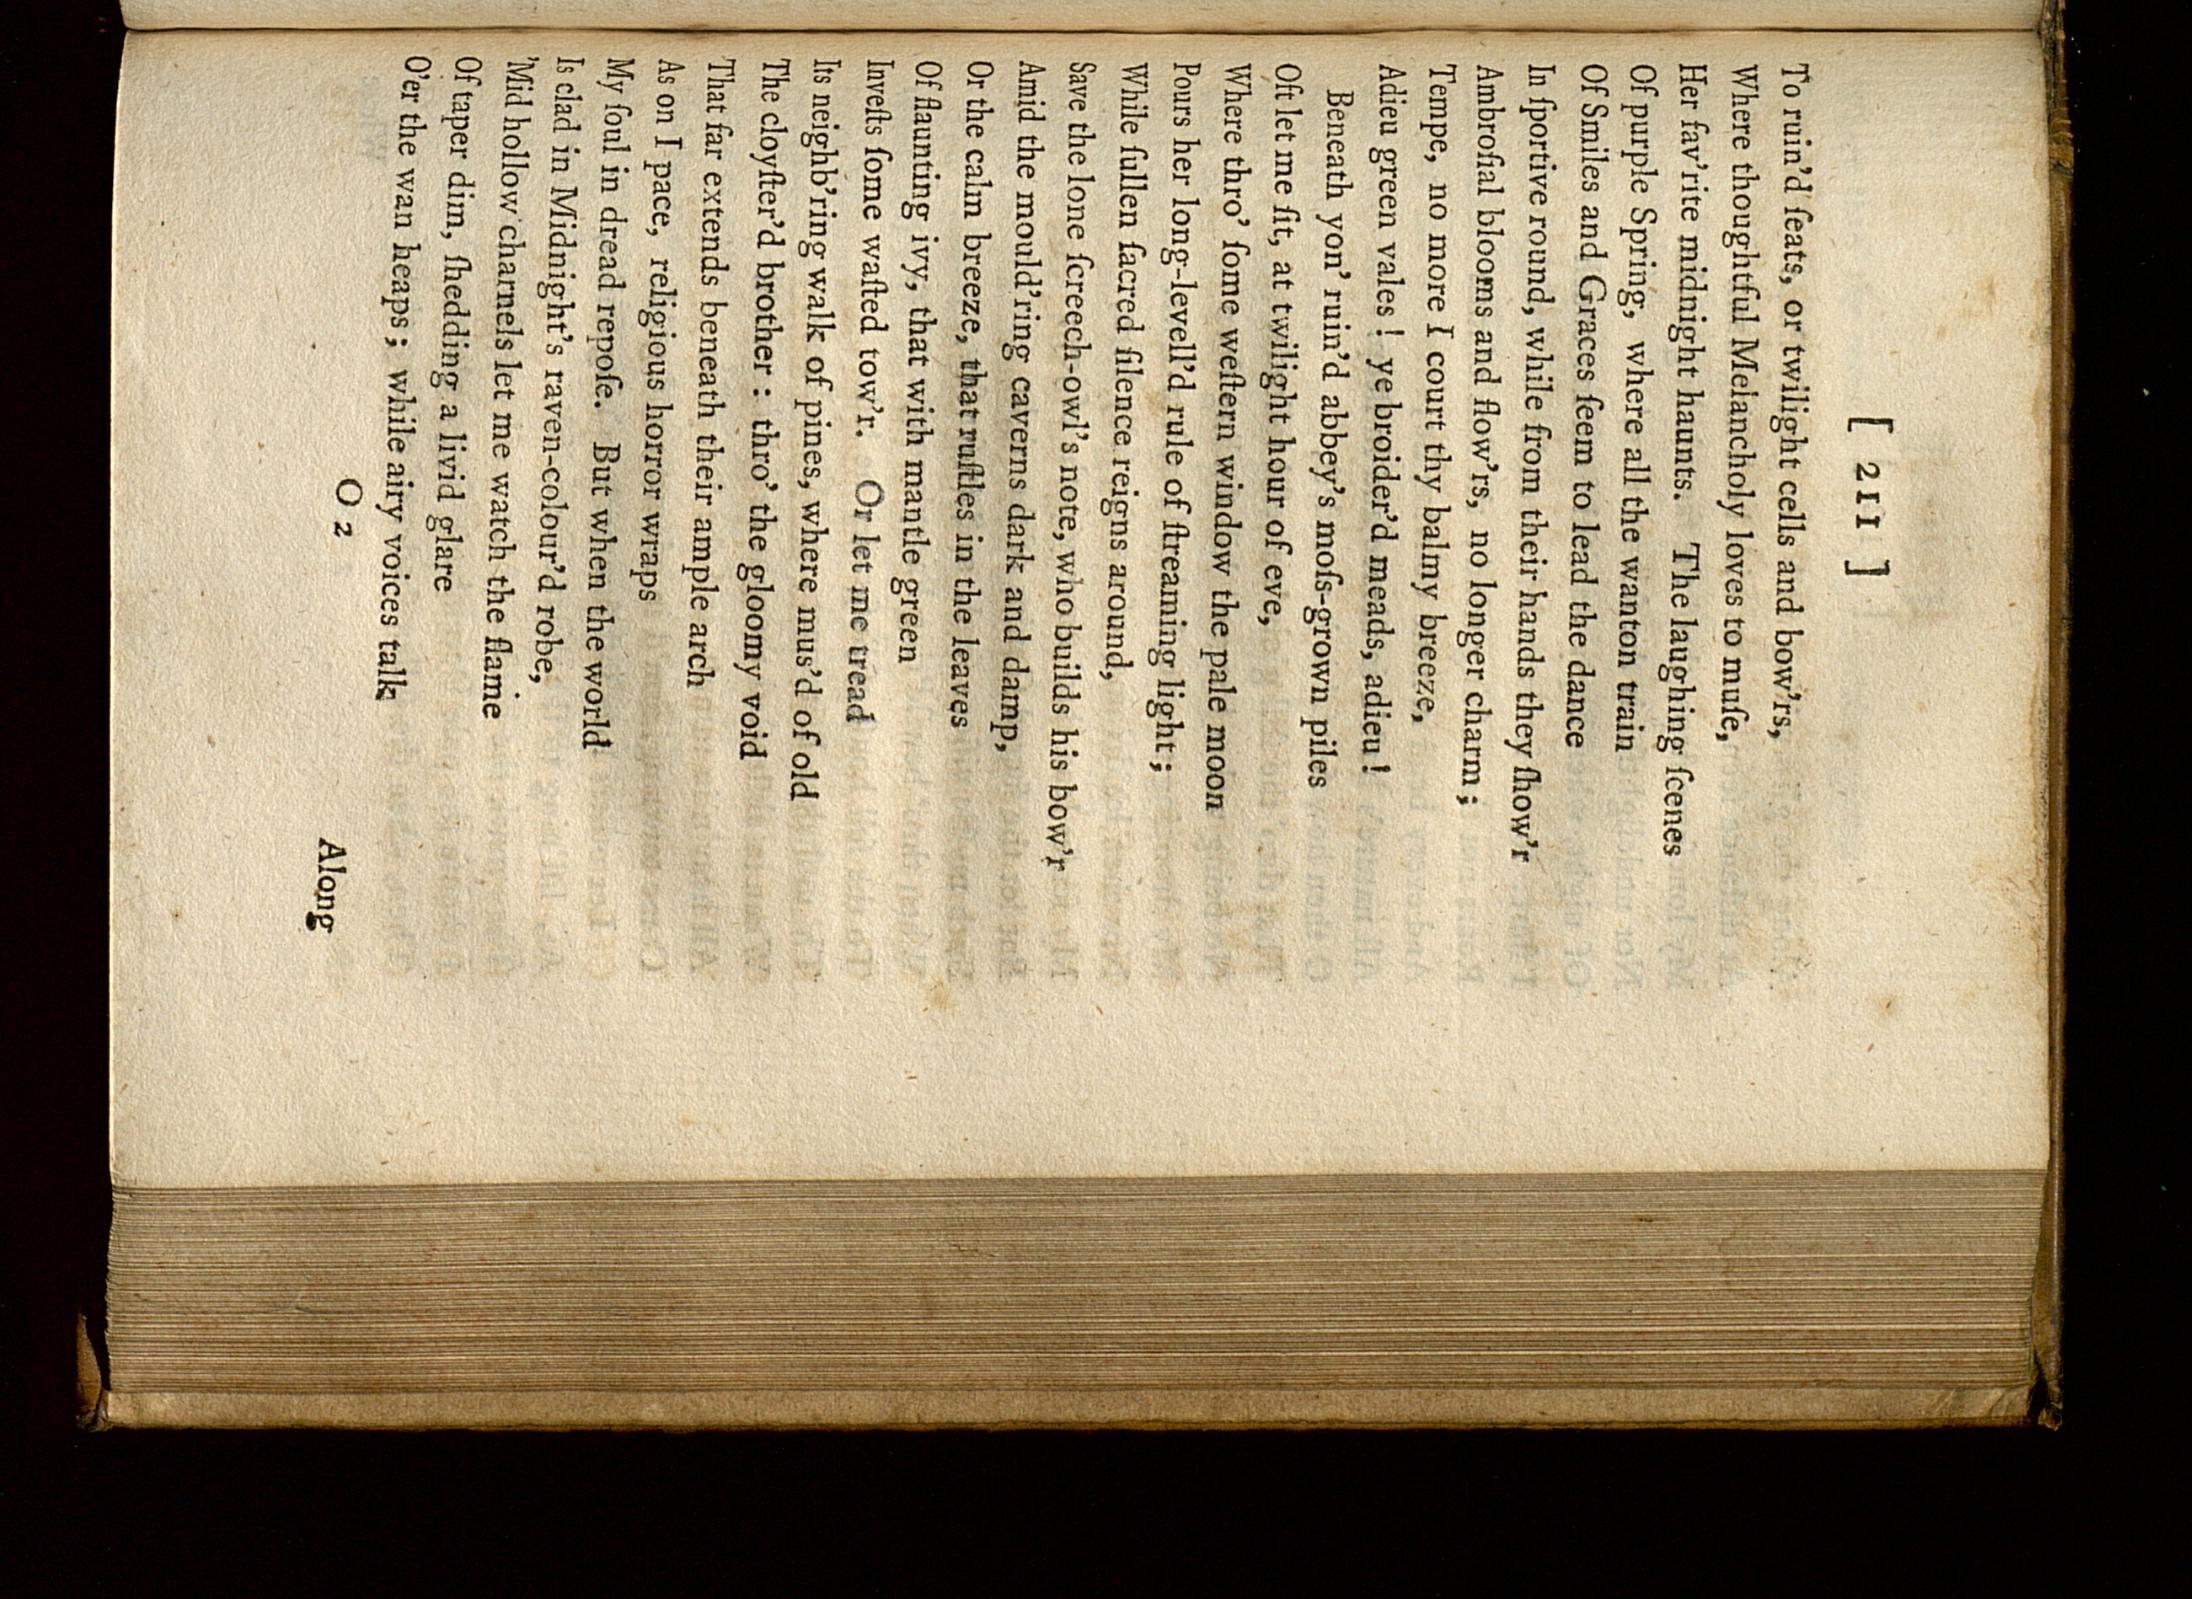 [ 211 ]
To ruin'd ſeats, or twilight cells and bow'rs,
Where thoughtful Melancholy loves to muſe,
Her fav'rite midnight haunts. The laughing ſcenes
Of purple Spring, where all the wanton train
Of Smiles and Graces ſeem to lead the dance
In ſportive round, while from their hands they ſhow'r
Ambroſial blooms and flow'rs, no longer charm;
Tempe, no more I court thy balmy breeze,
Adieu green vales! ye broider'd meads, adieu!
Beneath yon' ruin'd abbey's moſs-grown piles
Oft let me ſit, at twilight hour of eve,
Where thro' ſome weſtern window the pale moon
Pours her long-levell'd rule of ſtreaming light;
While ſullen ſacred ſilence reigns around,
Save the lone ſcreech-owl's note, who builds his bow'r
Amid the mould'ring caverns dark and damp,
Or the calm breeze, that ruſtles in the leaves
Of flaunting ivy, that with mantle green
Inveſts ſome waſted tow'r. Or let me tread
Its neighb'ring walk of pines, where mus'd of old
The cloyſter'd brother: thro' the gloomy void
That far extends beneath their ample arch
As on I pace, religious horror wraps
My ſoul in dread repoſe. But when the world
Is clad in Midnight's raven-colour'd robe,
'Mid hollow charnels let me watch the flame
Of taper dim, ſhedding a livid glare
O'er the wan heaps; while airy voices talk
O 2
Along